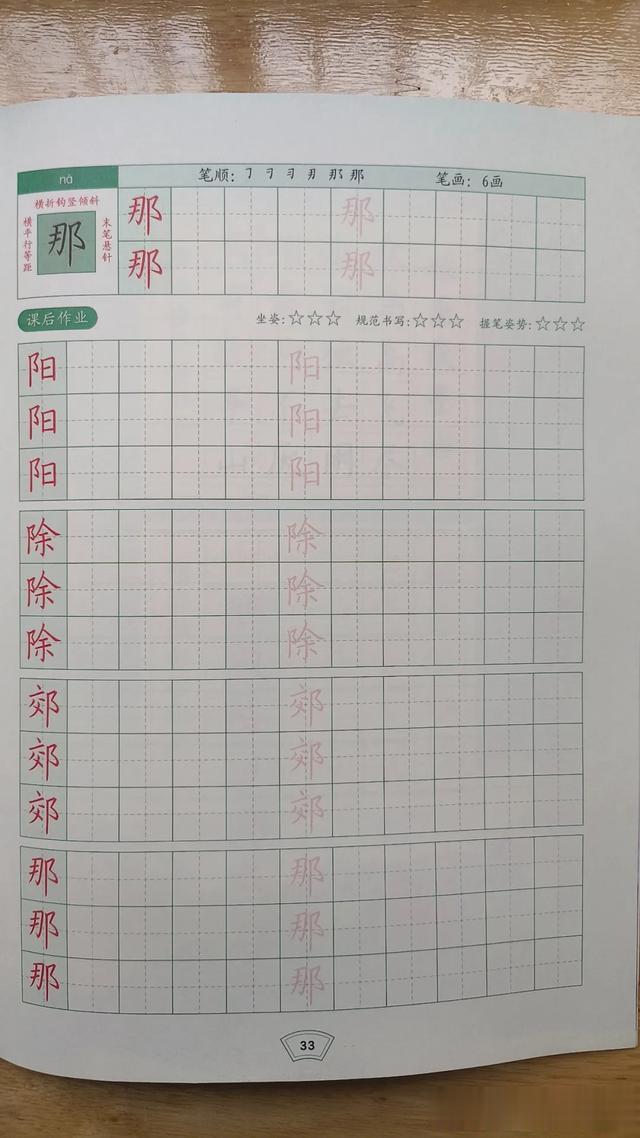 nà
笔顺：㇆ 刁 习 月 那 那 笔画：6画
横折钩竖倾斜
横平行等距 那 末笔悬针
那 那
那 那
课后作业 坐姿：☆☆☆ 规范书写：☆☆☆ 握笔姿势：☆☆☆
阳 阳
阳 阳
阳 阳
除 除
除 除
除 除
郊 郊
郊 郊
郊 郊
那 那
那 那
那 那
33